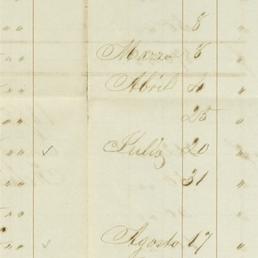 " " 8 "
" " Marzo 8 "
" " Abril 4 "
" " 25 "
" " ✓ Julio 20 "
" " 31 "
" "
" ✓ Agosto 17 "